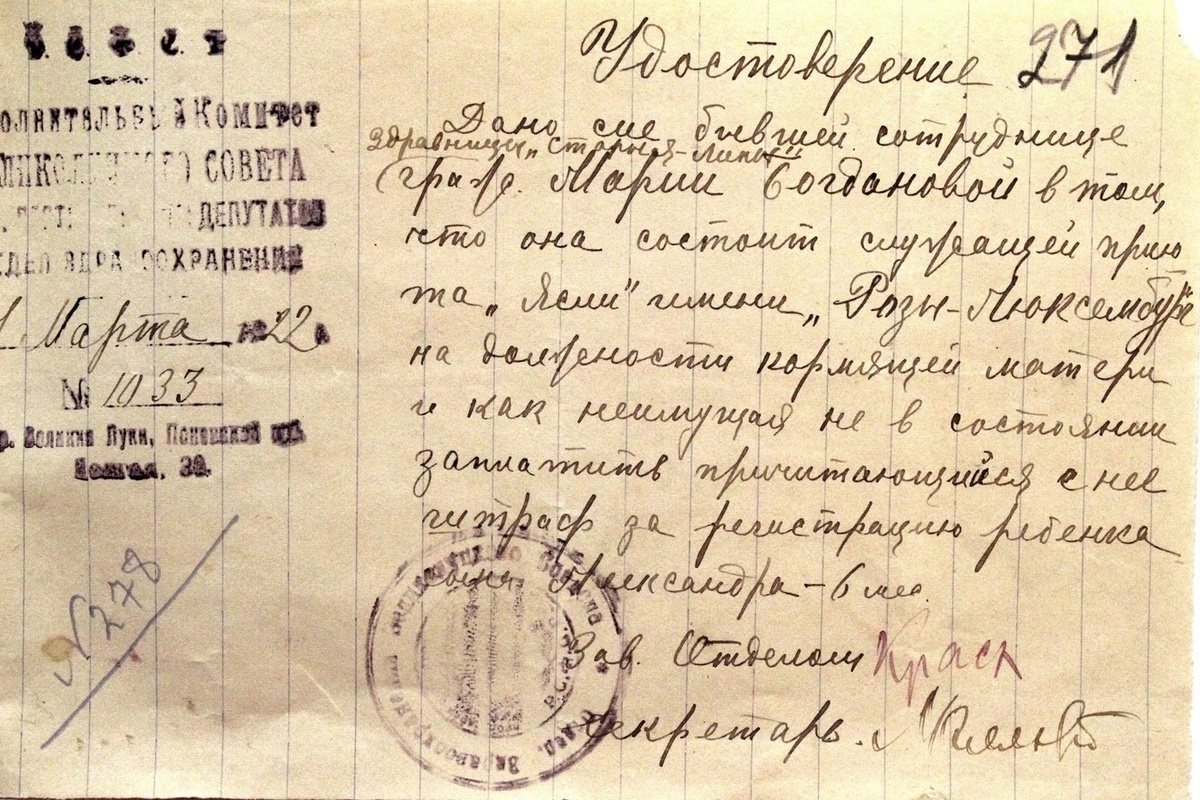 Р.С.Ф.С.Р.
олнительный Комитет
СОВЕТА
ДЕПУТАТОВ
ЗДРАВООХРАНЕНИЯ
1 Марта 1922 г.
№ 1033
гор. Великие Луки, Псковской губ.
Удостоверение 271
Дано сие бывшей сотруднице
Здравницы „Старыя-Липы"
(граж. Марии Богдановой в том,
что она состоит служащей прию
та „Ясли" имени „Розы-Люксембург"
на должности кормящей матери
и как неимущая не в состоянии
заплатить причитающийся с нее
штраф за регистрацию ребенка
сына Александра – 6 мес.
Зав. Отделом Краск
Секретарь.
№ 278